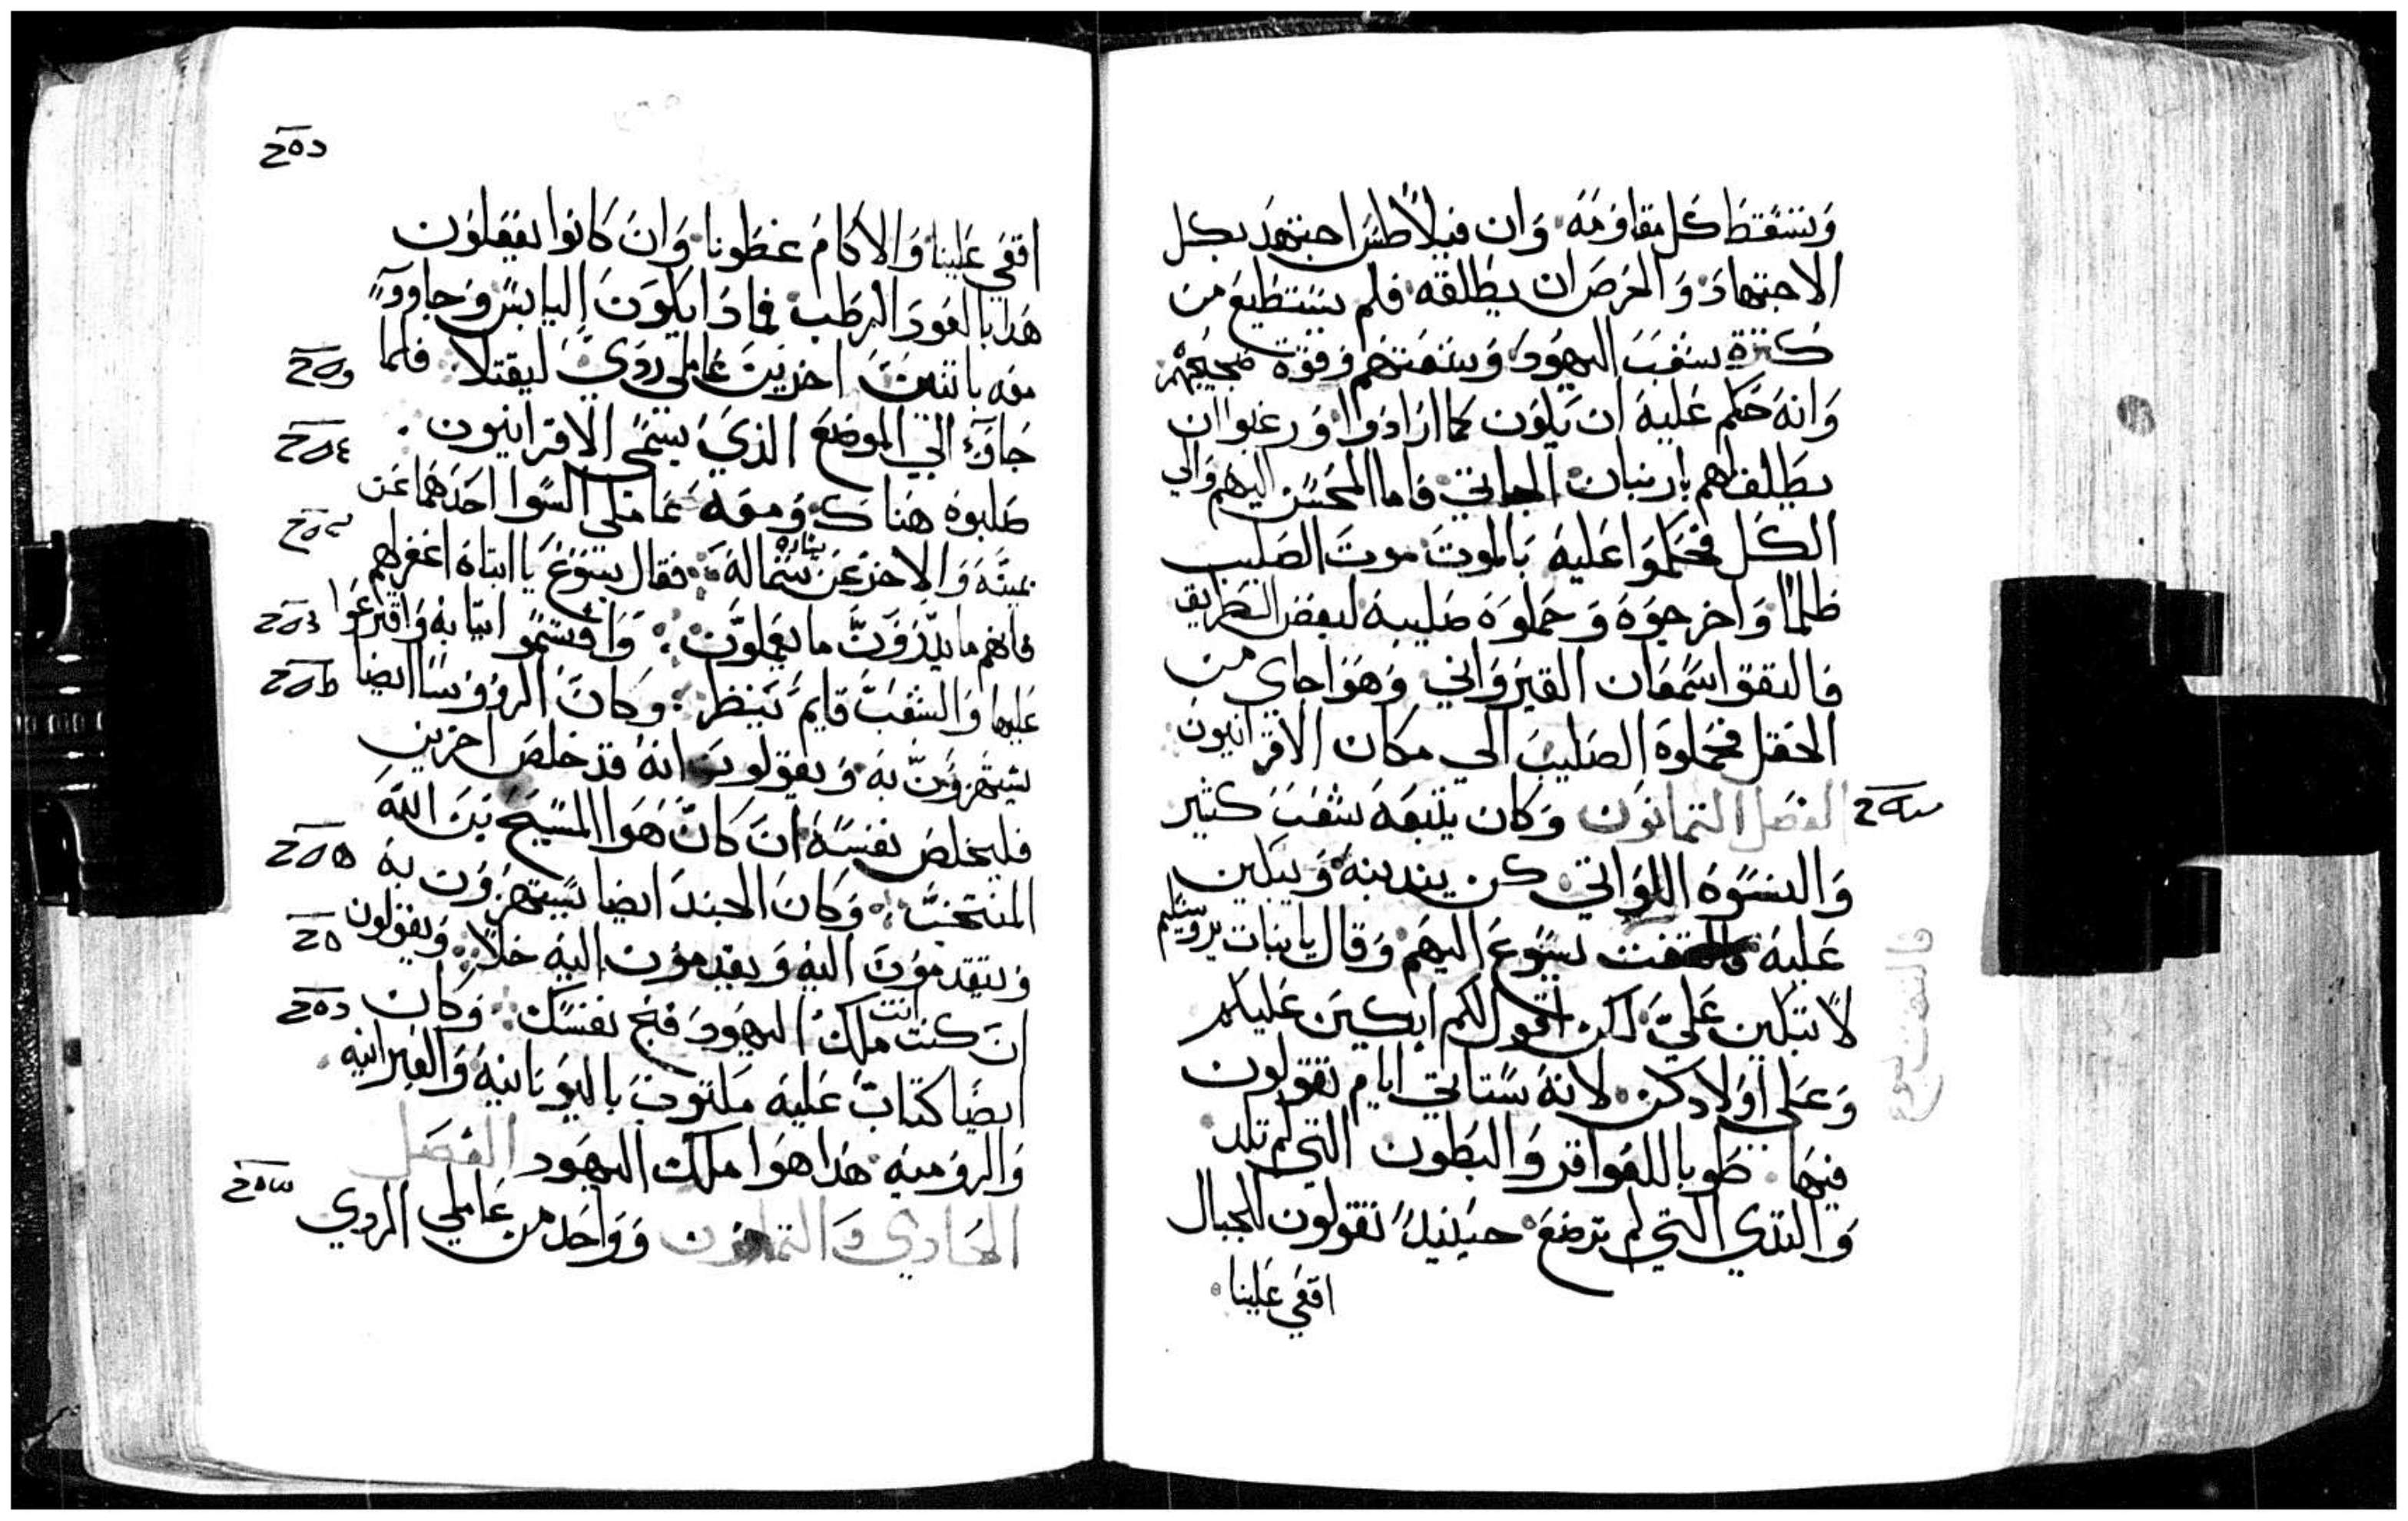 وتسقط كل مقاومه وان فيلاطس اجتهد بكل
الاجتهاد والحرص ان يطلقه فلم يستطيع من
كثرة شعب اليهود وشعثهم وقوة ضجيجهم
وانه حكم عليه ان يكون كما ارادوا ورغبوا ان
يطلق لهم باربنان الجاني فاما المحسن اليهم والي
الكل فحكموا عليه بالموت موت الصليب
ظلما واخرجوه وحملوه صليبه لبعض الطريق
فالتقوا سمعان القيرواني وهوا جاي من
الحقل فحملوه الصليب الي مكان الاقرانيون
الفصل الثمانون وكان يتبعه شعب كثير
والنسوه اللواتي كن يندبنه ويبكين
عليه فالتفت يسوع اليهم وقال يا بنات يروشليم
لا تبكين علي لكن اقول لكم ابكين عليكم
وعلي اولادكن لانه ستاتي ايام تقولون
فيها طوبا للعواقر والبطون التي لم تلد
والثدي التي لم ترضع حينيذ تقولون للجبال
اقعي علينا
فالتفت يسوع
اقعي علينا والاكام غطونا وان كانوا يفعلون
هذا بالعود الرطب فماذا يكون اليابس وجاووا
معه باثنين اخرين عاملي ردي ليقتلا فلما
جاوا الي الموضع الذي يسمي الاقرانيون
صلبوه هناك ومعه عاملي السوا احدهما عن
يمينه والاخر عن شماله فقال يسوع يا ابتاه اغفر لهم
يساره
فانهم ما يدرون ما يعملون واقتسموا ثيابه واقترعوا
عليها والشعب قايم ينظر وكان الرووسا ايضا
يستهزون به ويقولون انه قد خلص اخرين
فليخلص نفسه ان كان هوا المسيح بن الله
المنتخب وكان الجند ايضا يستهزون به
ويتقدمون اليه ويقدمون اليه خلا ويقولون
ان كنت انت ملك اليهود فنج نفسك وكان
ايضا كتاب عليه مكتوب باليونانيه والعبرانيه
والروميه هذا هوا ملك اليهود الفصل
الحادي والثمانون وواحد من عاملي الردي